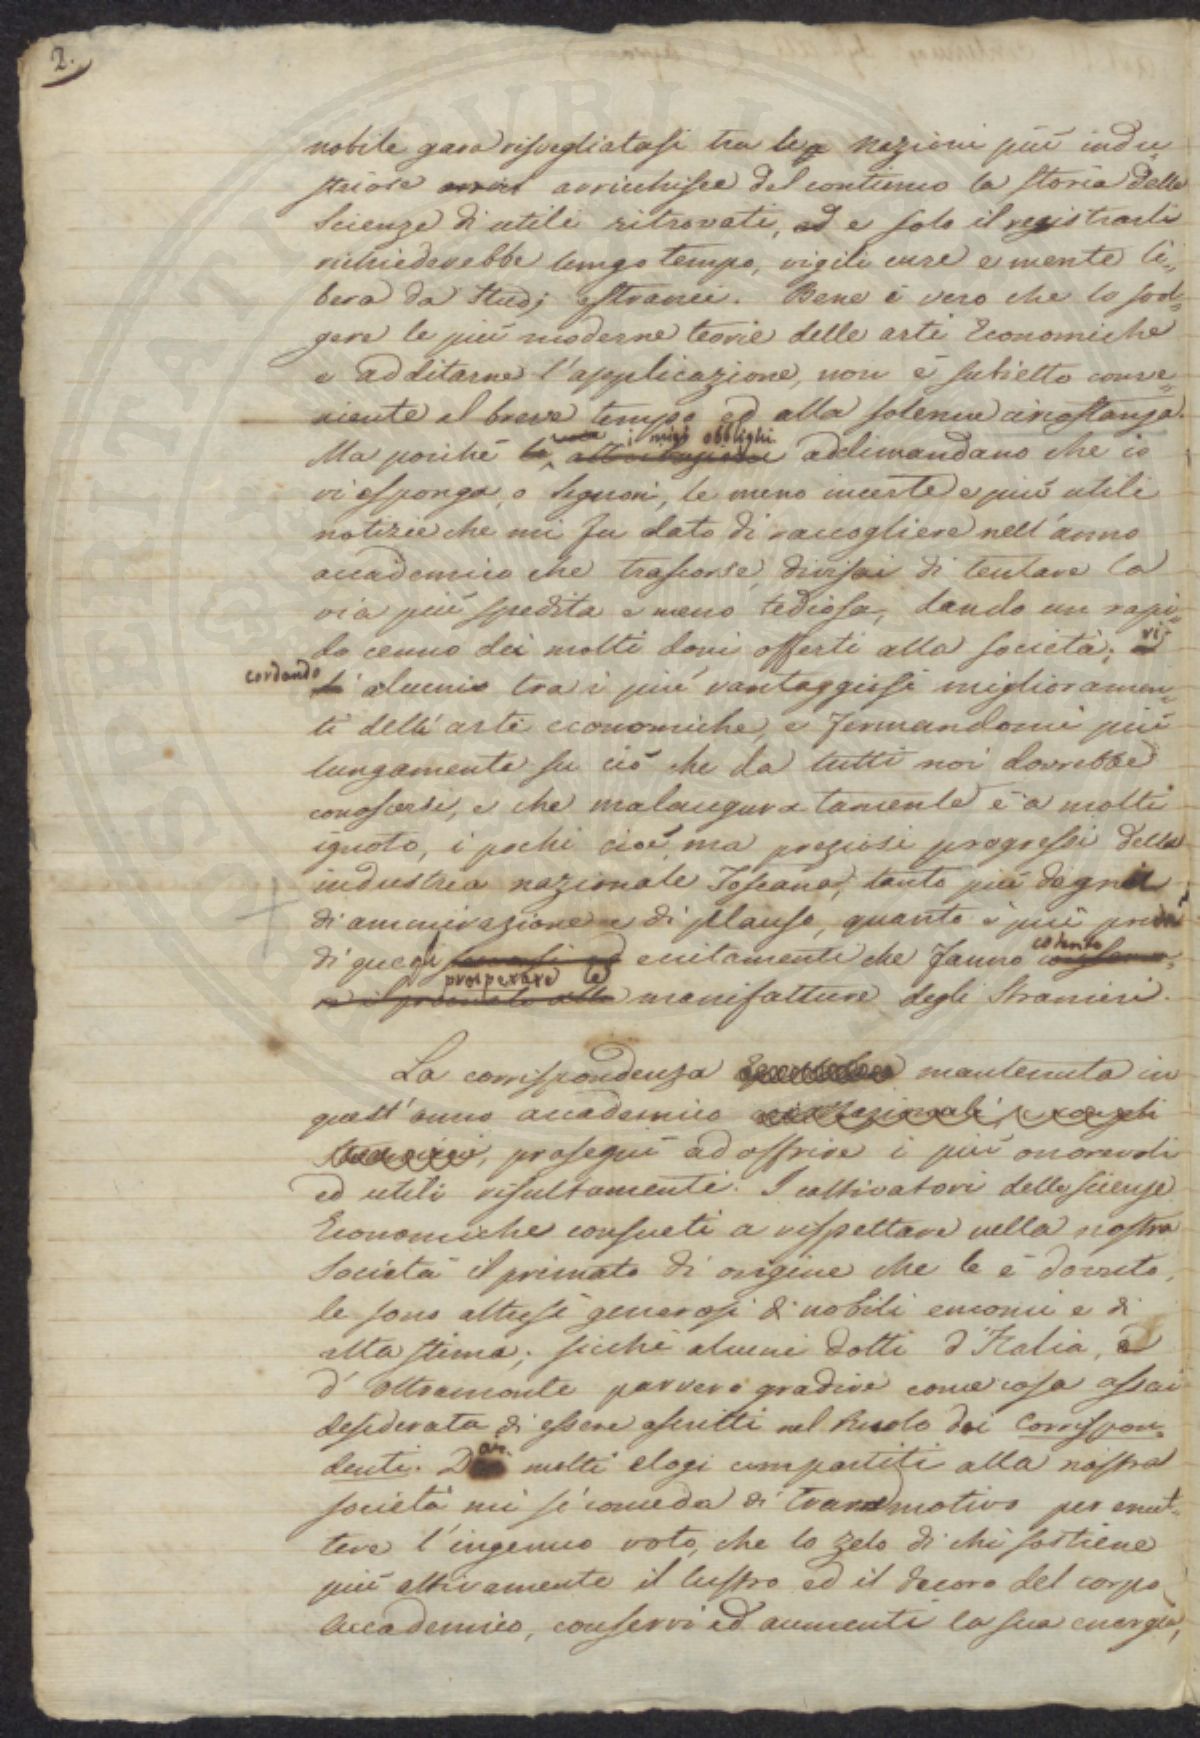 2.
nobile gara risvegliatasi tra le nazioni più indu=
striose arricchisce del continuo la storia delle
Scienze di utili ritrovati, e solo il registrarli
richiederebbe lungo tempo, vigili cure e mente li=
bera da Studj estranei. Bene è vero che lo svol=
gere le più moderne teorie delle arti Economiche
e additarne l'applicazione, non è subietto conve=
niente al breve tempo ed alla solenne circostanza.
i miei obblighi
Ma poichè addimandano che io
vi esponga, o Signori, le meno incerte e più utili
notizie che mi fu dato di raccogliere nell'anno
accademico che trascorse, divisai di tentare la
via più spedita e meno tediosa, dando un rapi=
do cenno dei molti doni offerti alla società; ri=
cordando alcuni tra i più vantaggiosi miglioramen=
ti dell'arti economiche, e fermandomi più
lungamente su ciò che da tutti noi dovrebbe
conoscersi, e che malaugura tamente è a molti
ignoto, i pochi cioè ma preziosi progressi della
industria nazionale Toscana, tanto più degni
di ammirazione e di plauso, quanto è più
di quegli eccitamenti che fanno cotanto
prosperare le manifatture degli Stranieri.
La corrispondenza mantenuta in
quest'anno accademico
proseguì ad offrire i più onorevoli
ed utili risultamenti. I coltivatori delle scienze
Economiche consueti a rispettare nella nostra
Società il primato di origine che le è dovuto,
le sono altresì generosi di nobili encomii e di
alta stima; sicchè alcuni dotti d'Italia, e
d'Oltramonte parvero gradire come cosa assai
desiderata di essere ascritti nel Ruolo dei Corrispon=
denti. Dai molti elogi compartiti alla nostra
società mi si conceda di trarre motivo per emet=
tere l'ingenuo voto, che lo zelo di chi sostiene
più attivamente il lustro ed il decoro del corpo
Accademico, conservi ed aumenti la sua energia,